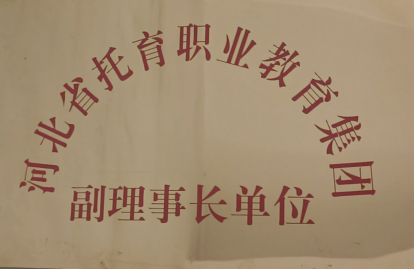 河北省托育职业教育集团
副理事长单位